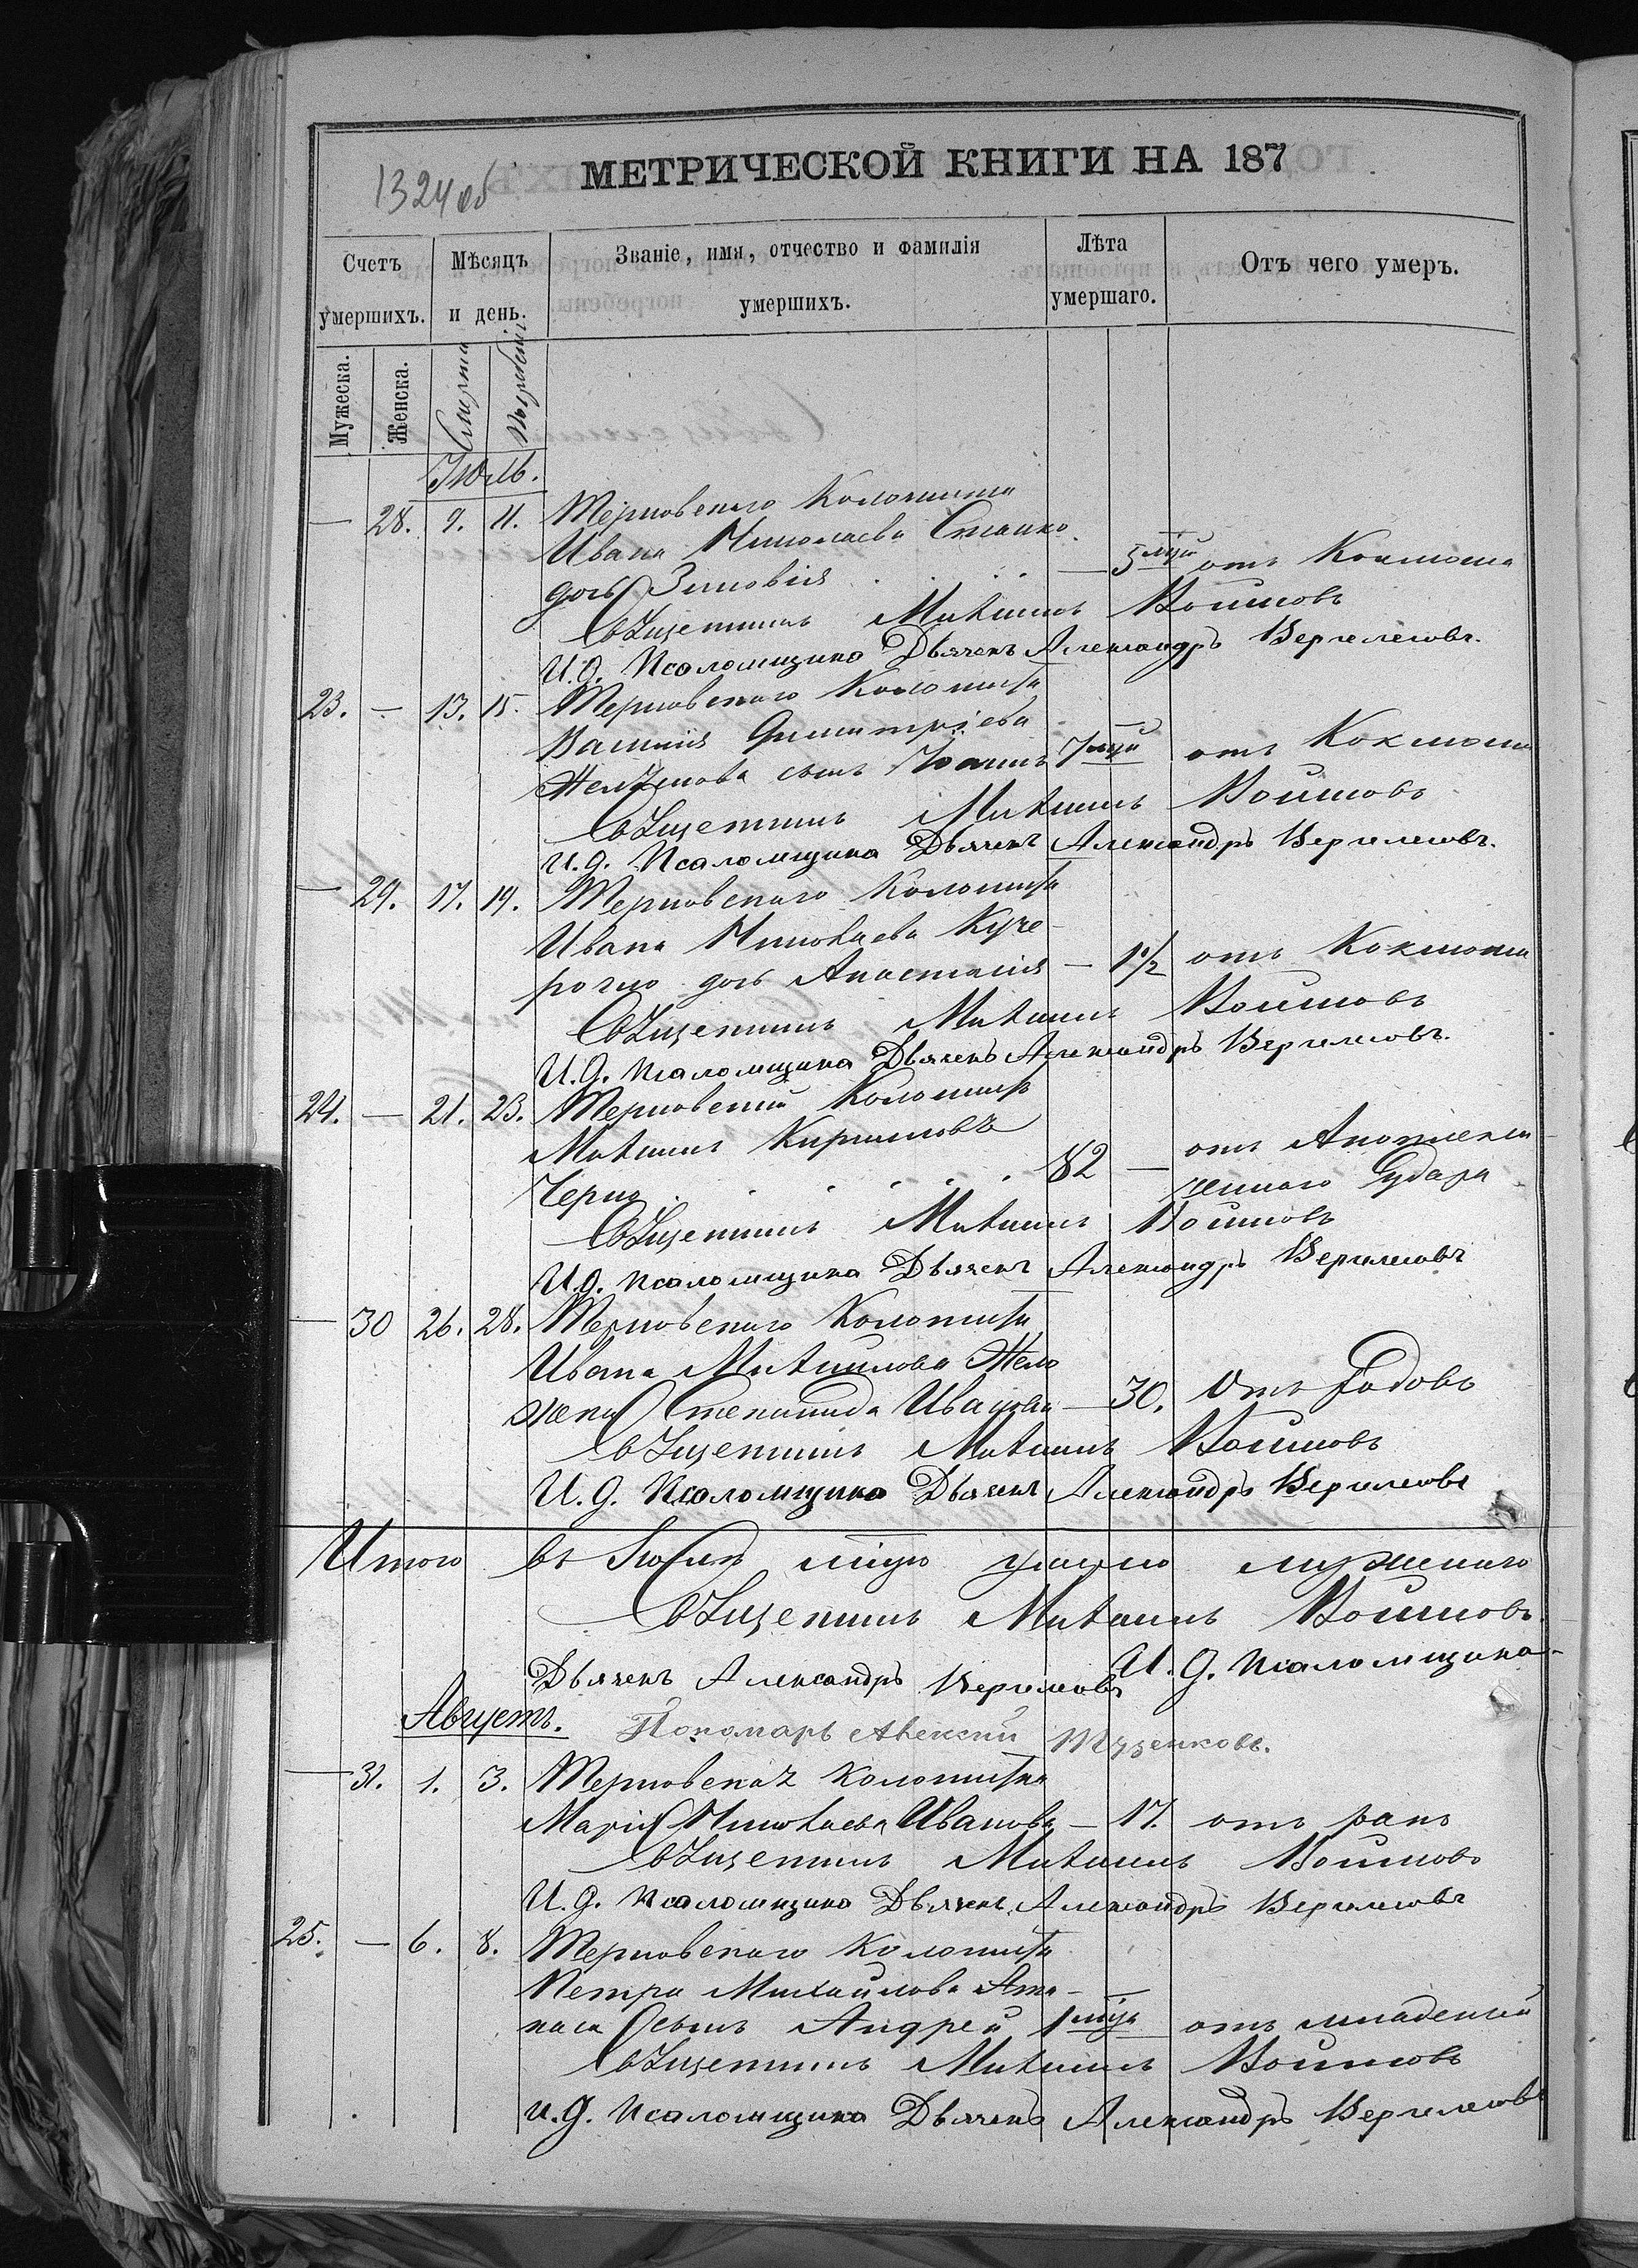 1324 об
МЕТРИЧЕСКОЙ КНИГИ НА 187
Счетъ умершихъ.
Мѣсяцъ и день.
Званіе, имя, отчество и фамилія умершихъ.
Лѣта умершаго.
Отъ чего умеръ.
Мужеска.
Женска.
Смерти
Погребенія
Іюль.
— 28. 9. 11. Терновскаго Колониста
Ивана Николаева Станко
дочь Зиновія — 5 мцй отъ Коклюша
Священникъ Михаилъ Воиновъ
И.д. Псаломщика Дьячекъ Александръ
23. — 13. 15. Терновскаго Колониста
Василія Димитріева
сынъ Іоаннъ 7 мцй отъ Коклюша
Священникъ Михаилъ Воиновъ
И.д. Псаломщика Дьячекъ Александръ
— 29. 17. 19. Терновскаго Колониста
Ивана Николаева Куче-
рочло дочь Анастасія — 1 1/2 отъ Коклюша
Священникъ Михаилъ Воиновъ
И.д. Псаломщика Дьячекъ Александръ
24. — 21. 23. Терновскій Колонистъ
Михаилъ Кирилловъ
Черно 82 — отъ Апоплекси-
ческаго Удара
Священникъ Михаилъ Воиновъ
И.д. Псаломщика Дьячекъ Александръ
— 30 26. 28. Терновскаго Колониста
Ивана Михаилова Жело
жена Степанида Иванова — 30. Отъ Родовъ
Священникъ Михаилъ Воиновъ
И.д. Псаломщика Дьячекъ Александръ
Итого въ Іюлѣ мцѣ умерло мужескаго
Священникъ Михаилъ Воиновъ.
И.д. Псаломщика
Дьячекъ Александръ
Августъ. Пономарь Алексій Тузенковъ.
— 31. 1. 3. Терновская Колонистка
Марія Николаева Иванова — 17. отъ ранъ
Священникъ Михаилъ Воиновъ
И.д. Псаломщика Дьячекъ Александръ
25. — 6. 8. Терновскаго Колониста
Петра Михайлова Ата-
наса сынъ Андрей 1 мцъ отъ младенчи
Священникъ Михаилъ Воиновъ
И.д. Псаломщика Дьячекъ Александръ